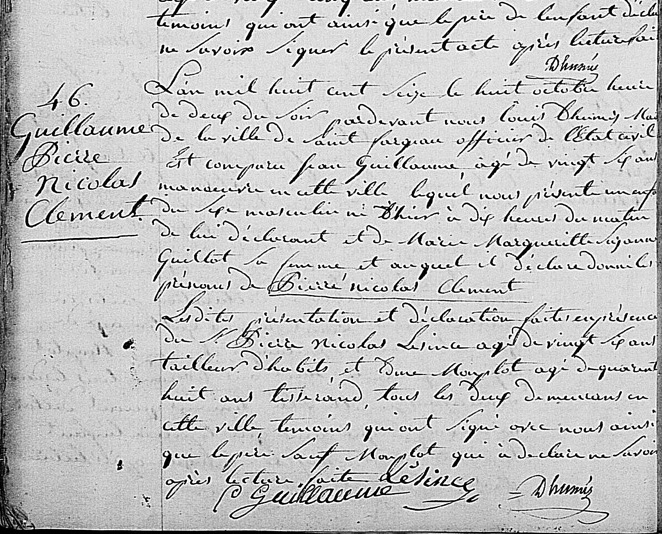 témoins qui ont ainsi que le père de l'enfant déclaré
ne savoir signer le présent acte après lecture fait
Dhumés
46.
Guillaume
Pierre
Nicolas
Clement
L'an mil huit cent seize le huit octobre heure
de deux du soir pardevant nous Louis Dhumés Mai
de la ville de Saint fargeau officier de l'Etat civil
Est comparu jean Guillaume agé de vingt six ans
manoeuvre en cette ville lequel nous présent un enf
du sexe masculin né D'hier à dix heures du matin
de lui déclarant et de Marie Margueritte Suzanne
Guillot sa femme et auquel il déclare donner les
prénoms de Pierre nicolas Clement
Lesdites présentation et déclaration faites en présence
du Sr Pierre Nicolas Lesince agé de vingt six ans
tailleur d'habits et Edme Monplot agé de quarent
huit ans tisserand, tous les Deux demeurans en
cette ville temoins qui ont signé avec nous ainsi
que le père sauf Monplot qui à declare ne Savoir
après lecture faite Lésince
Guillaume
Dhumés